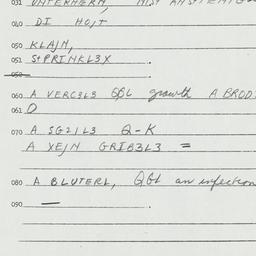 031 UNTERNEHM,
040 DI HOJT
050 KLAJN,
051 StPRINKL3X .
050
060 A VERC3L3 QBL growth A BROD
061 O
070 A SG21L3 Q-K
A XEJN GRIB3L3 =
080 A BLUTERL, QGL an infection
090 — .